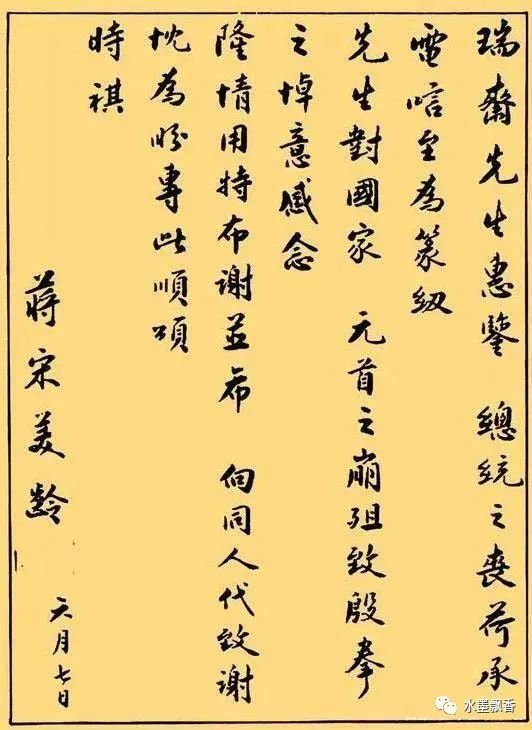 瑞齋先生惠鑒 總統之喪荷承
電唁至為篆紉
先生對國家 元首之崩殂致殷拳
之悼意感念
隆情用特布謝並希 向同人代致謝
忱為盼專此順頌
時祺
蔣宋美齡
六月七日
水墨飘香